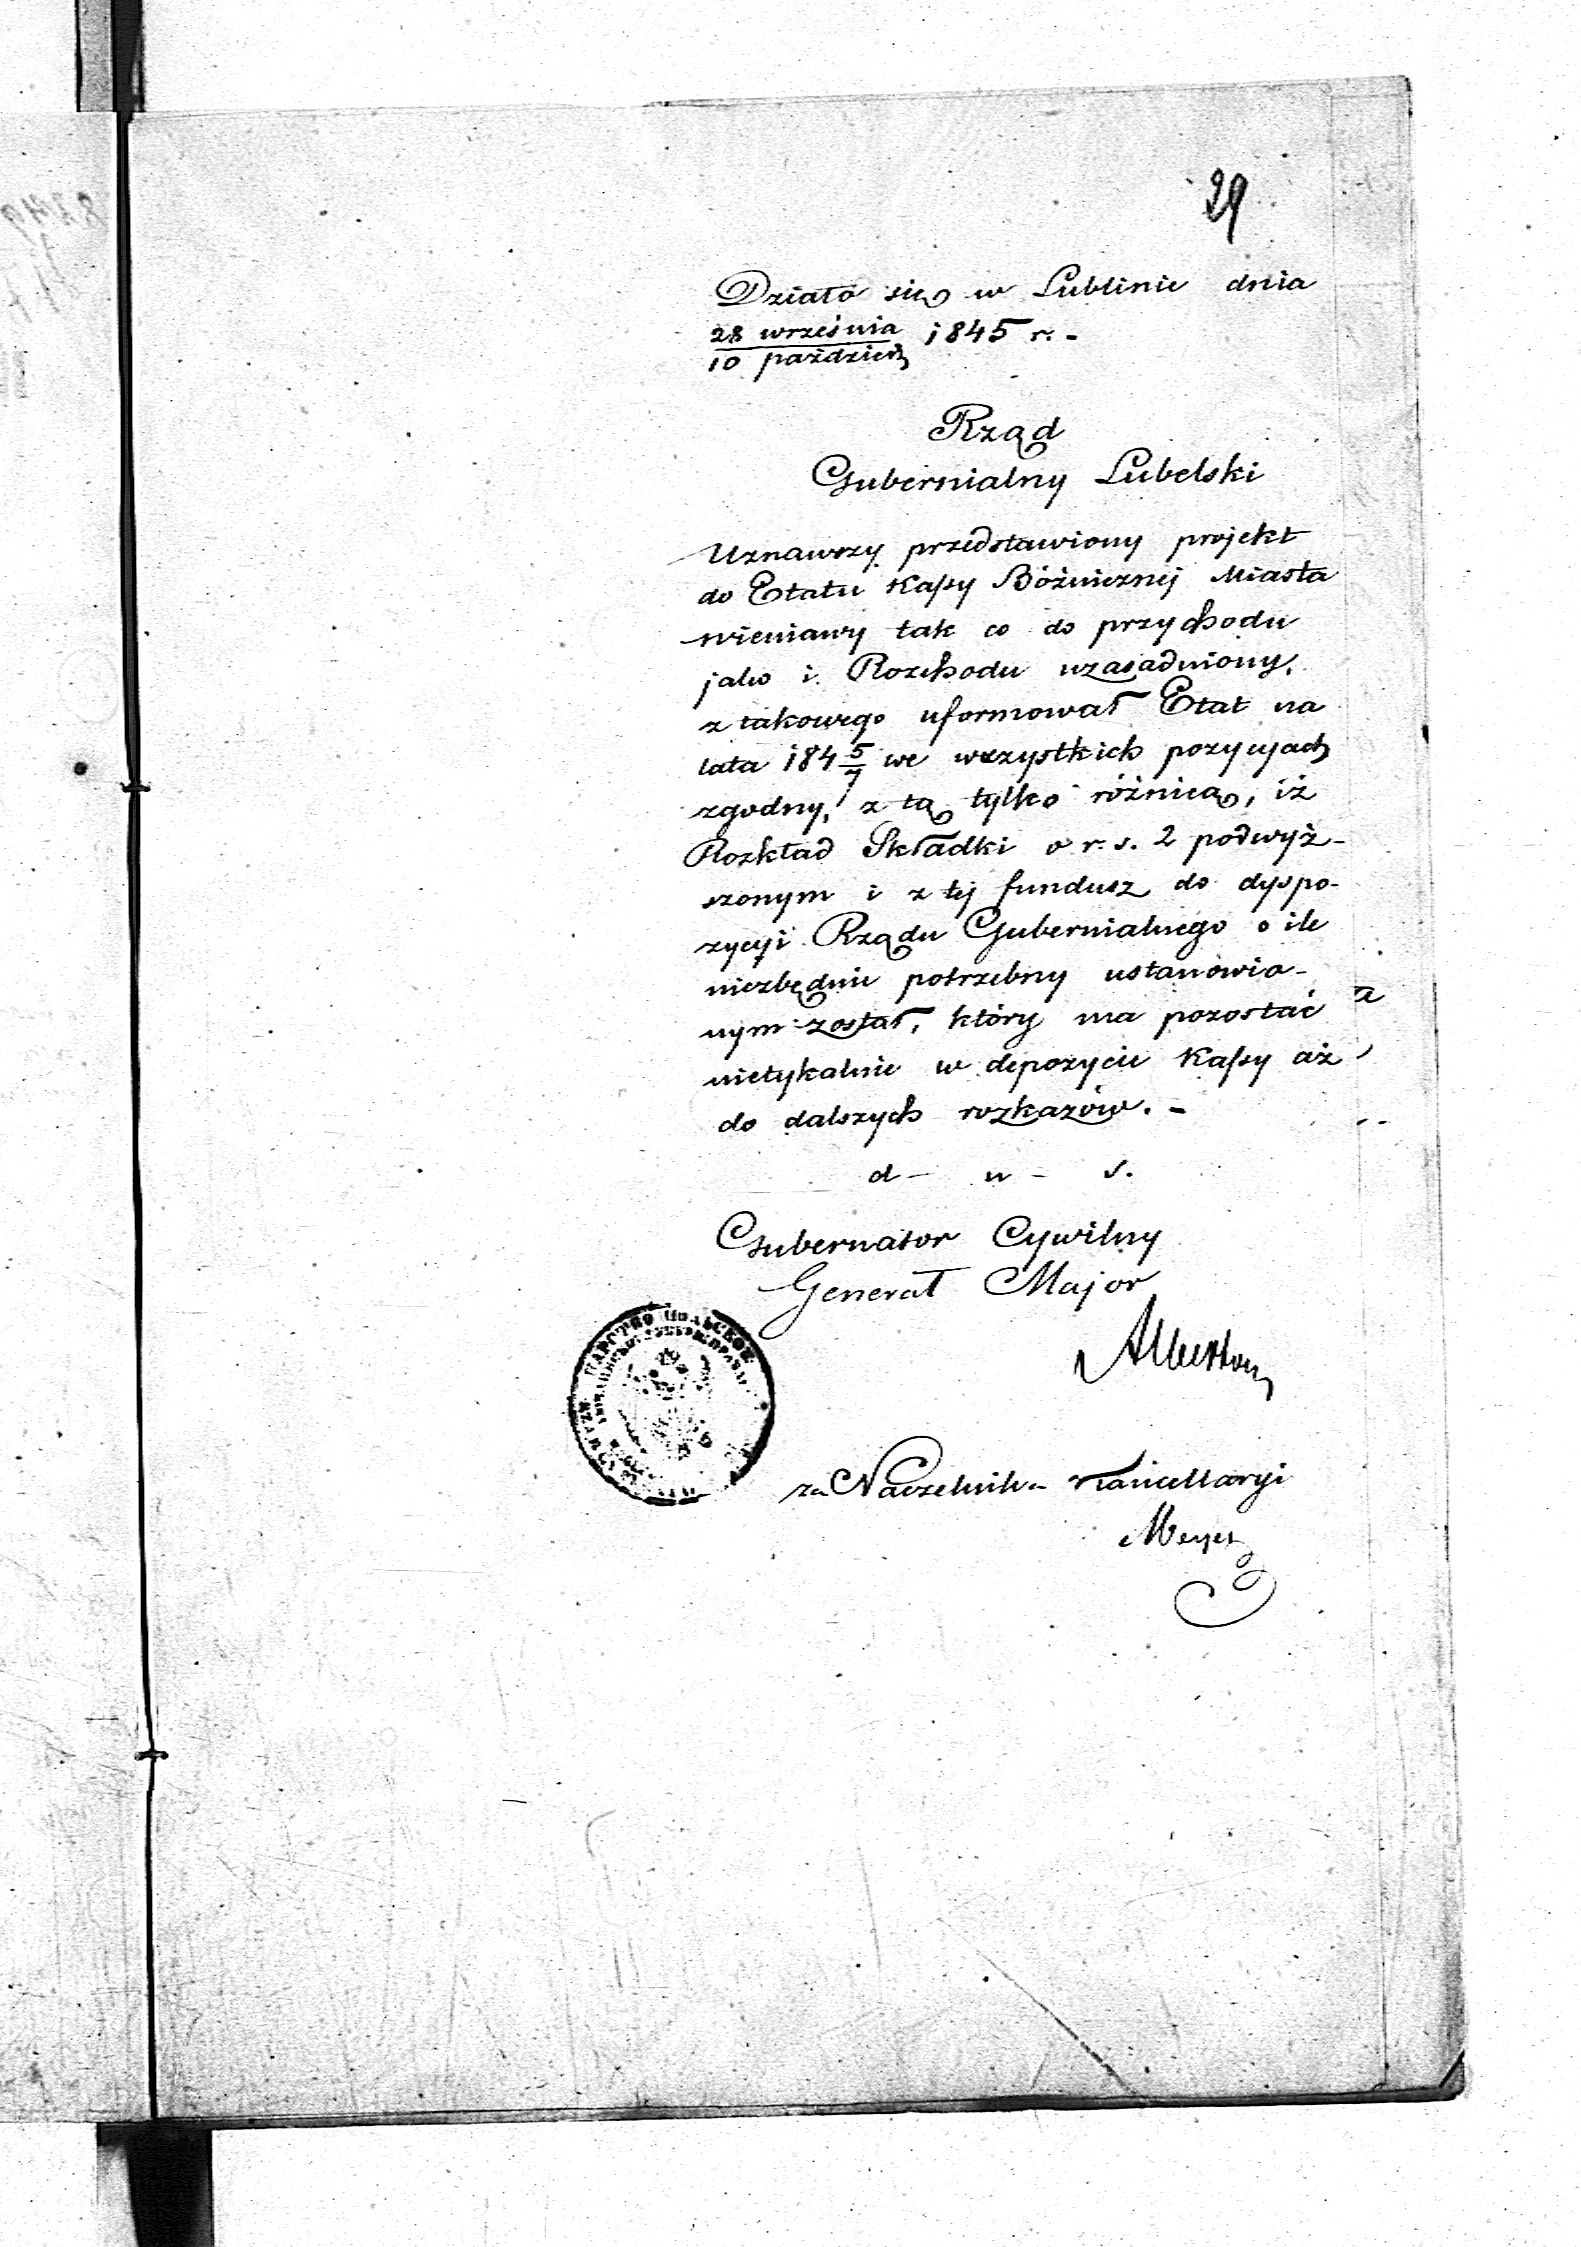 29
Działo się w Lublinie dnia
28 września
10 paździer 1845 r. -
Rząd
Gubernialny Lubelski
Uznawszy przedstawiony projekt
do Etatu Kassy Bóżnicznej Miasta
Wieniawy tak co do przychodu
jako i Rozchodu uzasadniony,
z takowego uformował Etat na
lata 184 5/7 we wszystkich pozycyach
zgodny, z tą tylko różnicą, iż
Rozkład Składki o r. s. 2 podwyż-
szonym i z tej fundusz do dyspo-
zycyi Rządu Gubernialnego o ile
niezbędnie potrzebny ustanowio-
nym został, który ma pozostać
nietykalnie w depozycie Kassy aż
do dalszych rozkazów. -
d - u - s.
Gubernator Cywilny
Generał Major
Albertow
ЦАРСТВО ПОЛЬСКОЕ
za Naczelnika Kancellaryi
Meyer